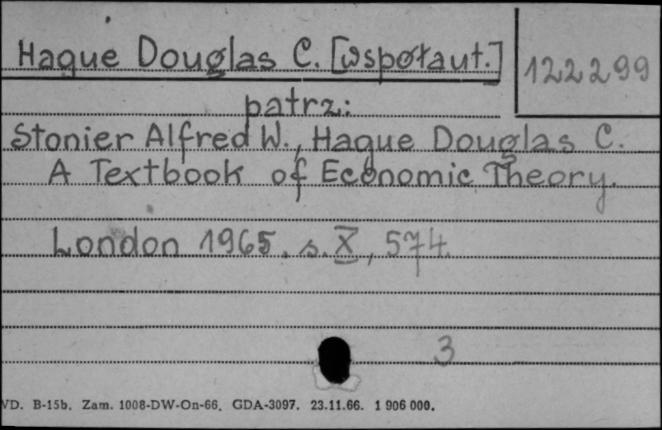 Hague Douglas C. [współaut.]
122299
patrz:
Stonier Alfred W., Hague Douglas C.
A Textbook of Economic Theory.
London 1965. s. X, 574.
3
VD. B-15b. Zam. 1008-DW-On-66. GDA-3097. 23.11.66. 1 906 000.